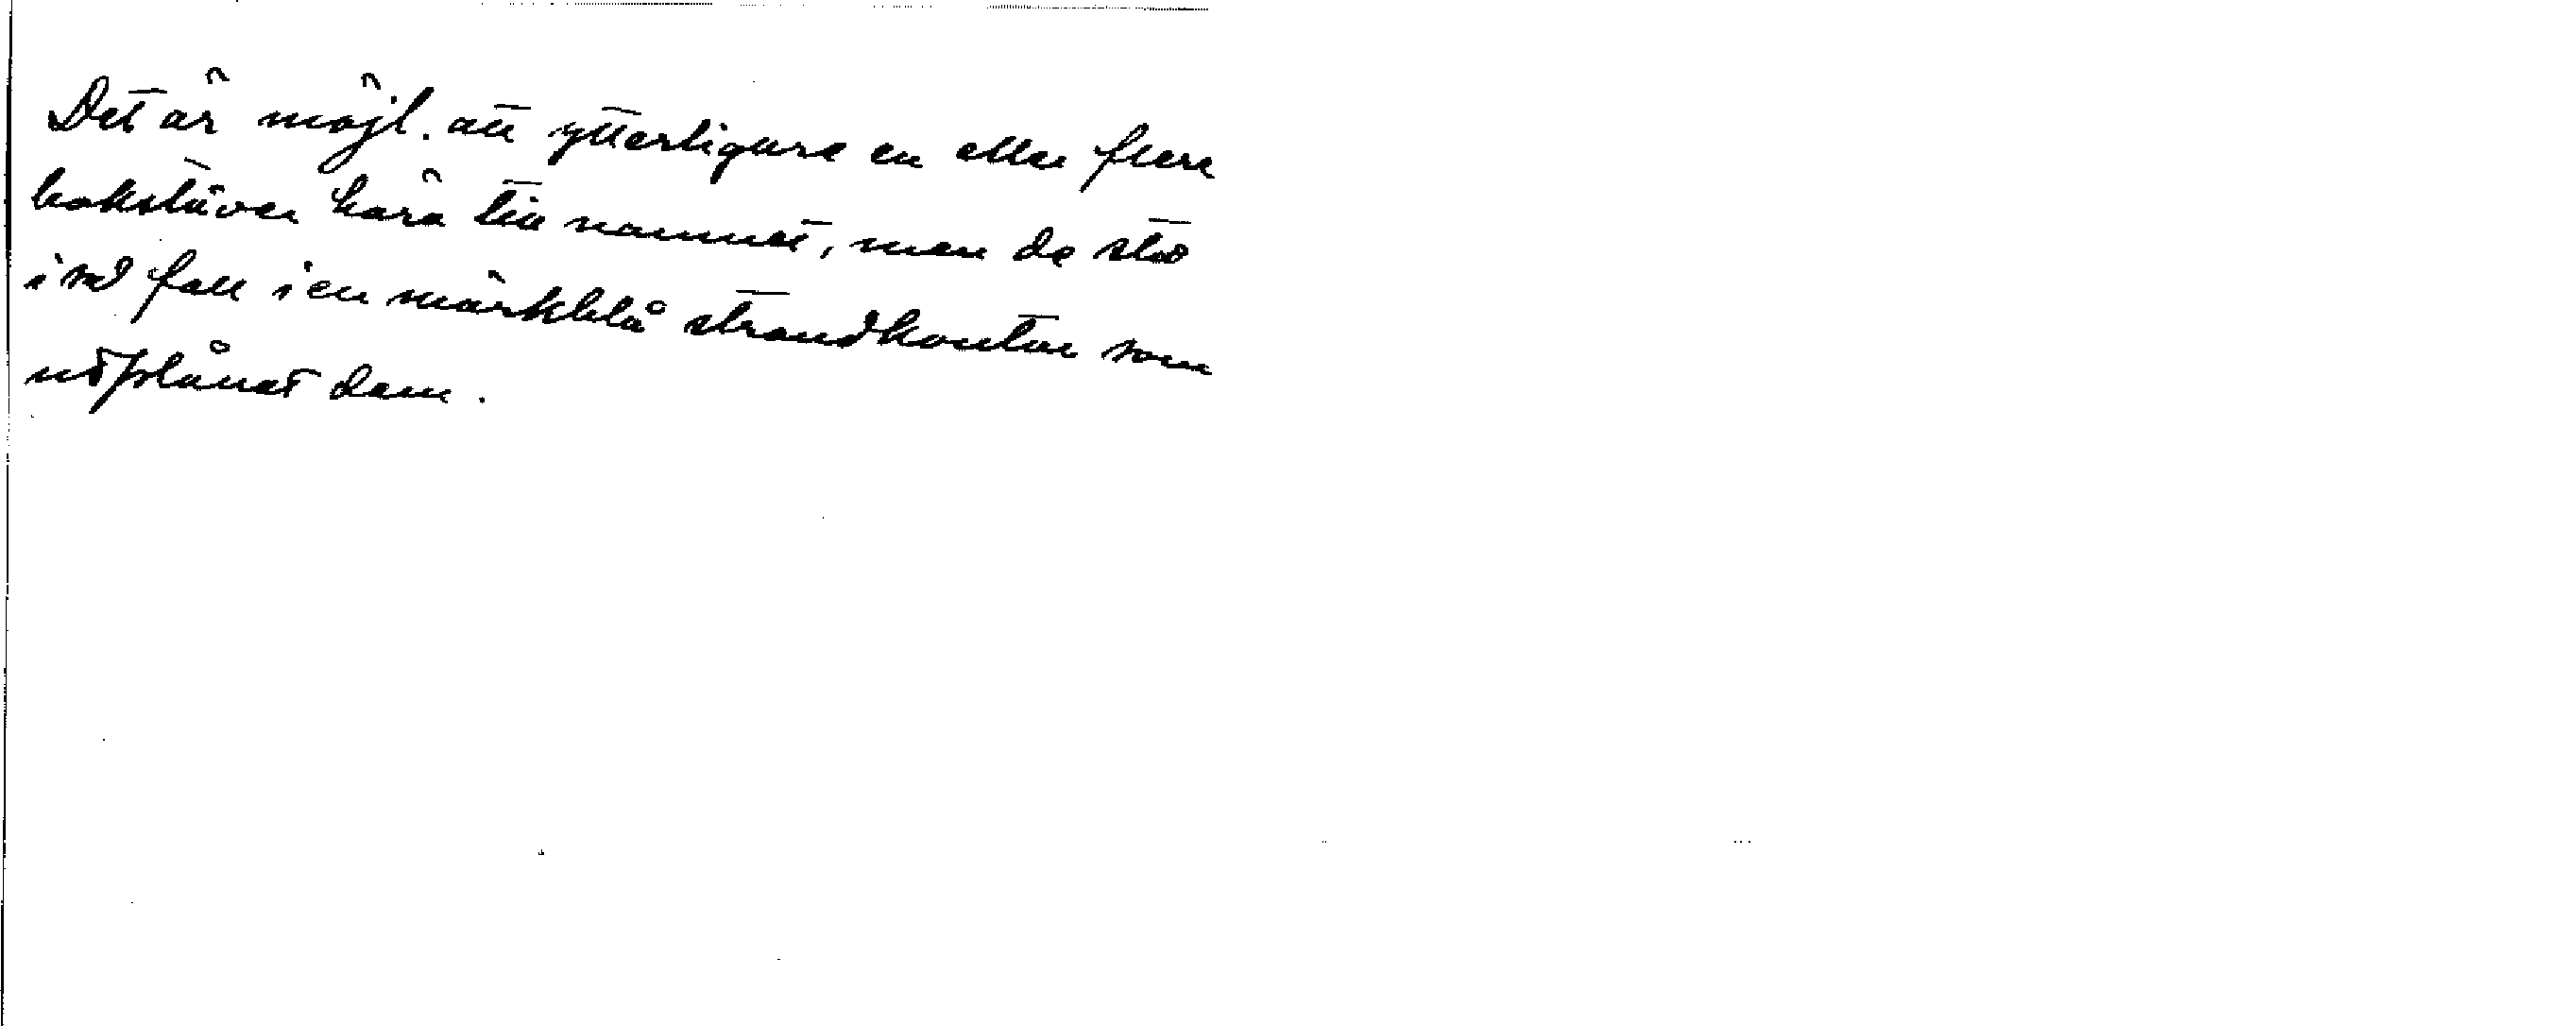 Det är möjl. att ytterligare en eller flere
bokstäver höra till namnet, men de stå
i så fall i en mörkblå strandkontur som
utplånat dem.